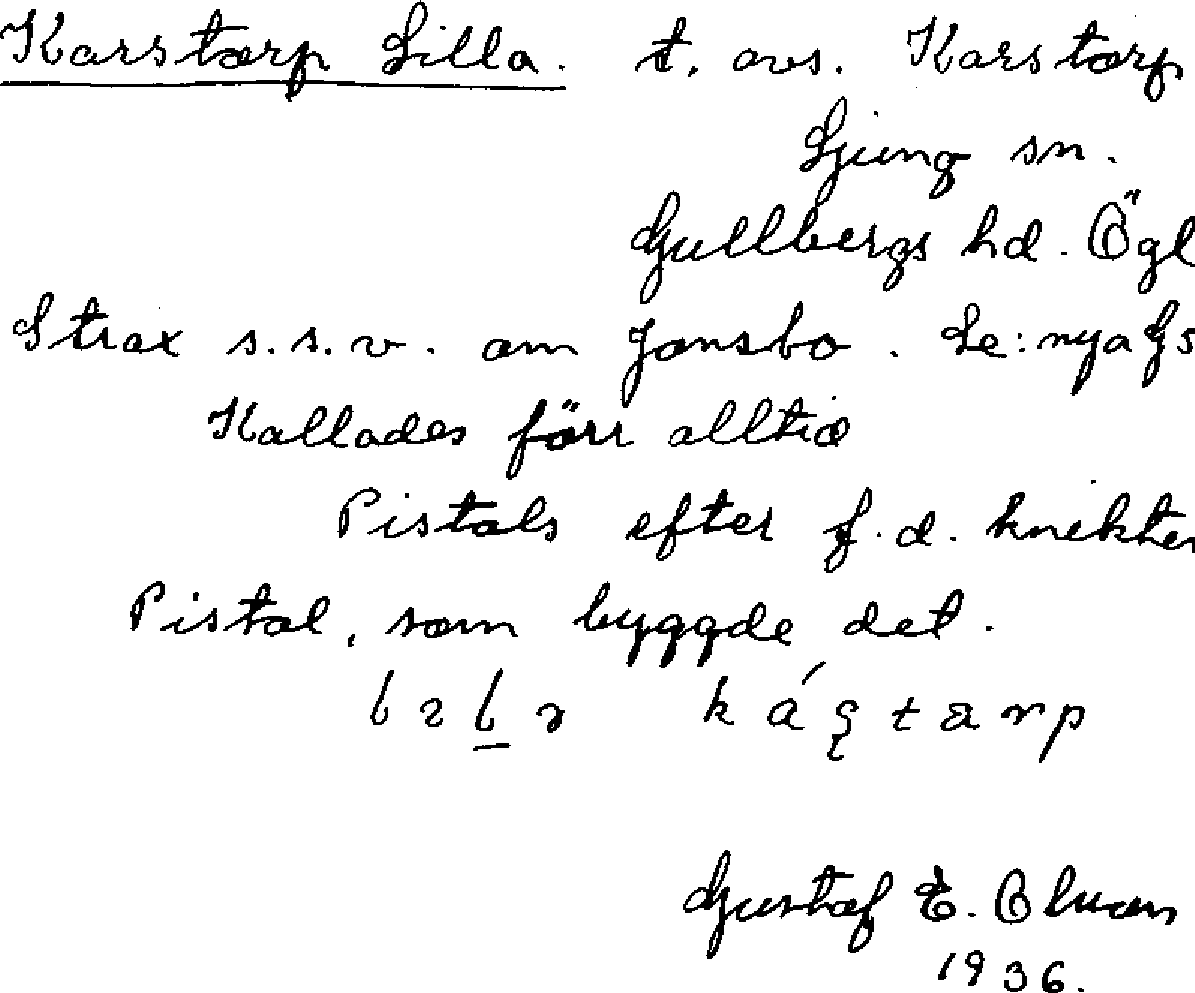 Karstorp Lilla. t. avs. Karstorp
Ljung sn.
Gullbergs hd. Ögl
Strax s.s.v. om Jonsbo. Se: nya Gs
Kallades förr alltid
Pistols efter f.d. knekten
Pistol, som byggde det.
Gustaf E. Olsson
1936.